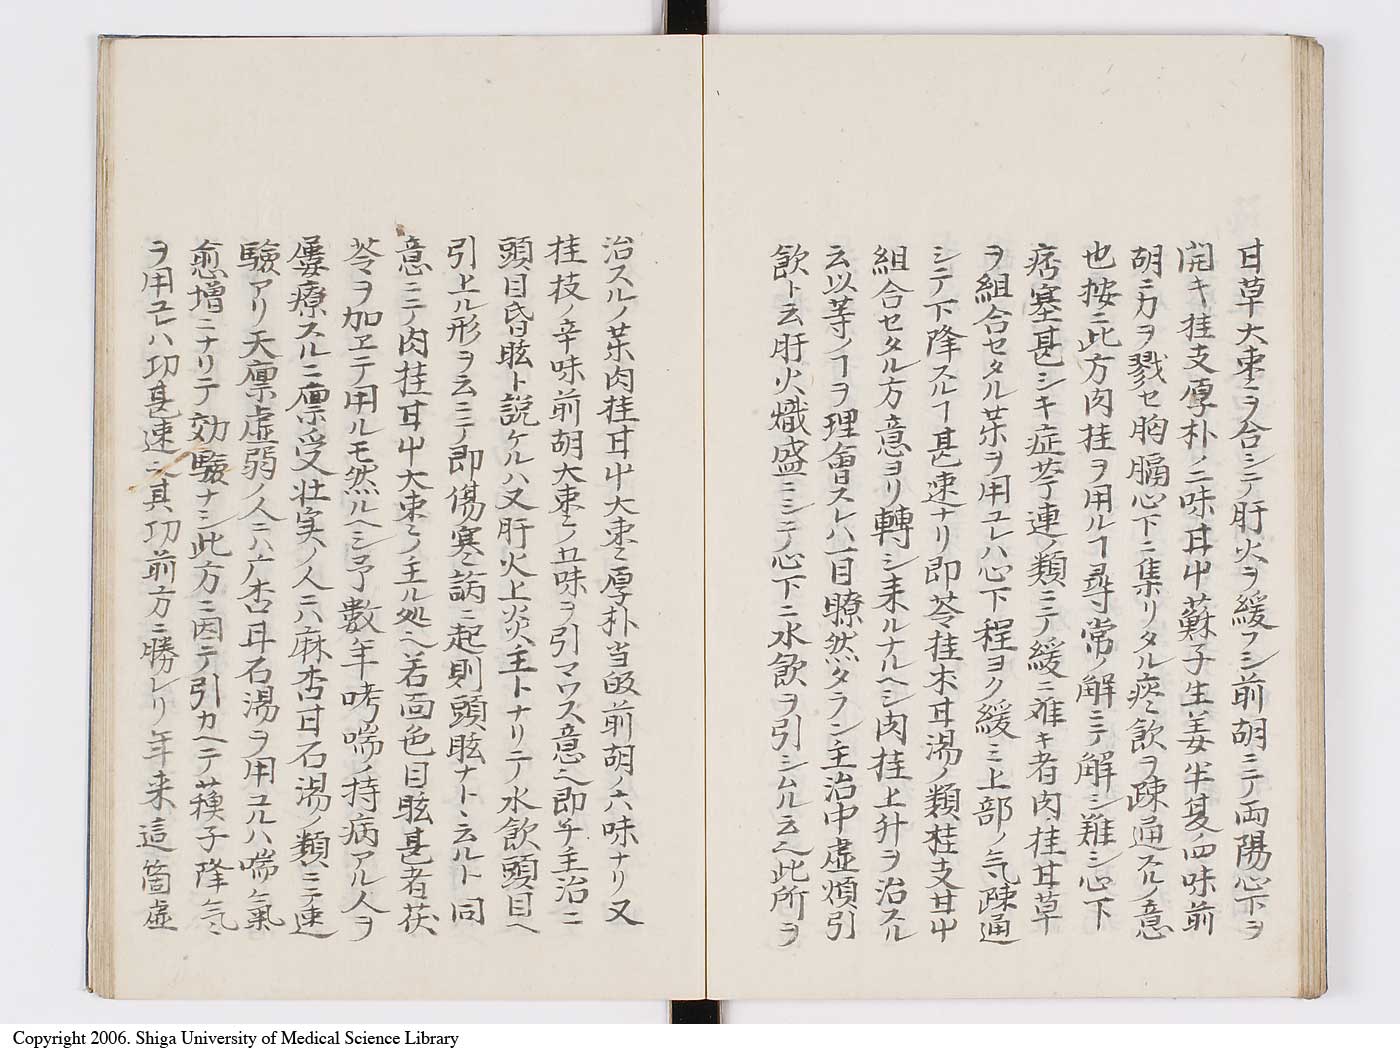 甘草大棗ヲ合シテ肝火ヲ緩フシ前胡ニテ両陽心下ヲ
開キ桂支厚朴ノ二味甘屮蘇子生姜半夏ノ四味前
胡ニ力ヲ戮セ胸膈心下ニ集リタル痰飲ヲ疎通スルノ意
也按ニ此方肉桂ヲ用ルヿ尋常ノ解ニテ解シ難シ心下
痞塞甚シキ症芩連ノ類ニテ緩ニ難キ者肉桂甘草
ヲ組合セタル薬ヲ用ユレハ心下程ヨク緩ミ上部ノ気疎通
シテ下降スルヿ甚速ナリ即苓桂朮甘湯ノ類桂支甘屮
組合セタル方意ヨリ轉シ来ルナルヘシ肉桂上升ヲ治スル
云以等ノヿヲ理會スレハ一目瞭然タラン主治中虚煩引
飲ト云肝火熾盛ニシテ心下ニ水飲ヲ引シムル云此所ヲ
治スルノ薬肉桂甘屮大棗厚朴当皈前胡ノ六味ナリ又
桂枝ノ辛味前胡大棗ノ五味ヲ引マワス意即チ主治ニ
頭目昏眩ト説ケルハ又肝火上炎主トナリテ水飲頭目ヘ
引上ル形ヲ云ニテ即傷寒論ニ起則頭眩ナト云ルト同
意ニテ肉桂甘屮大棗ノ主ル処ヘ若面色目眩甚者茯
苓ヲ加ヱテ用ルモ然ルヘシ予數年哮喘ノ持病アル人ヲ
屢療スルニ稟受壮実ノ人ニハ麻杏甘石湯ノ類ニテ速
驗アリ天禀虚弱ノ人ニハ杏甘石湯ヲ用ユルハ喘氣
愈増ニナリテ効驗ナシ此方ニ因テ引カヘテ蘓子降気
ヲ用ユレハ功甚速其功前方ニ勝レリ年来這箇虚
Copyright 2006. Shiga University of Medical Science Library